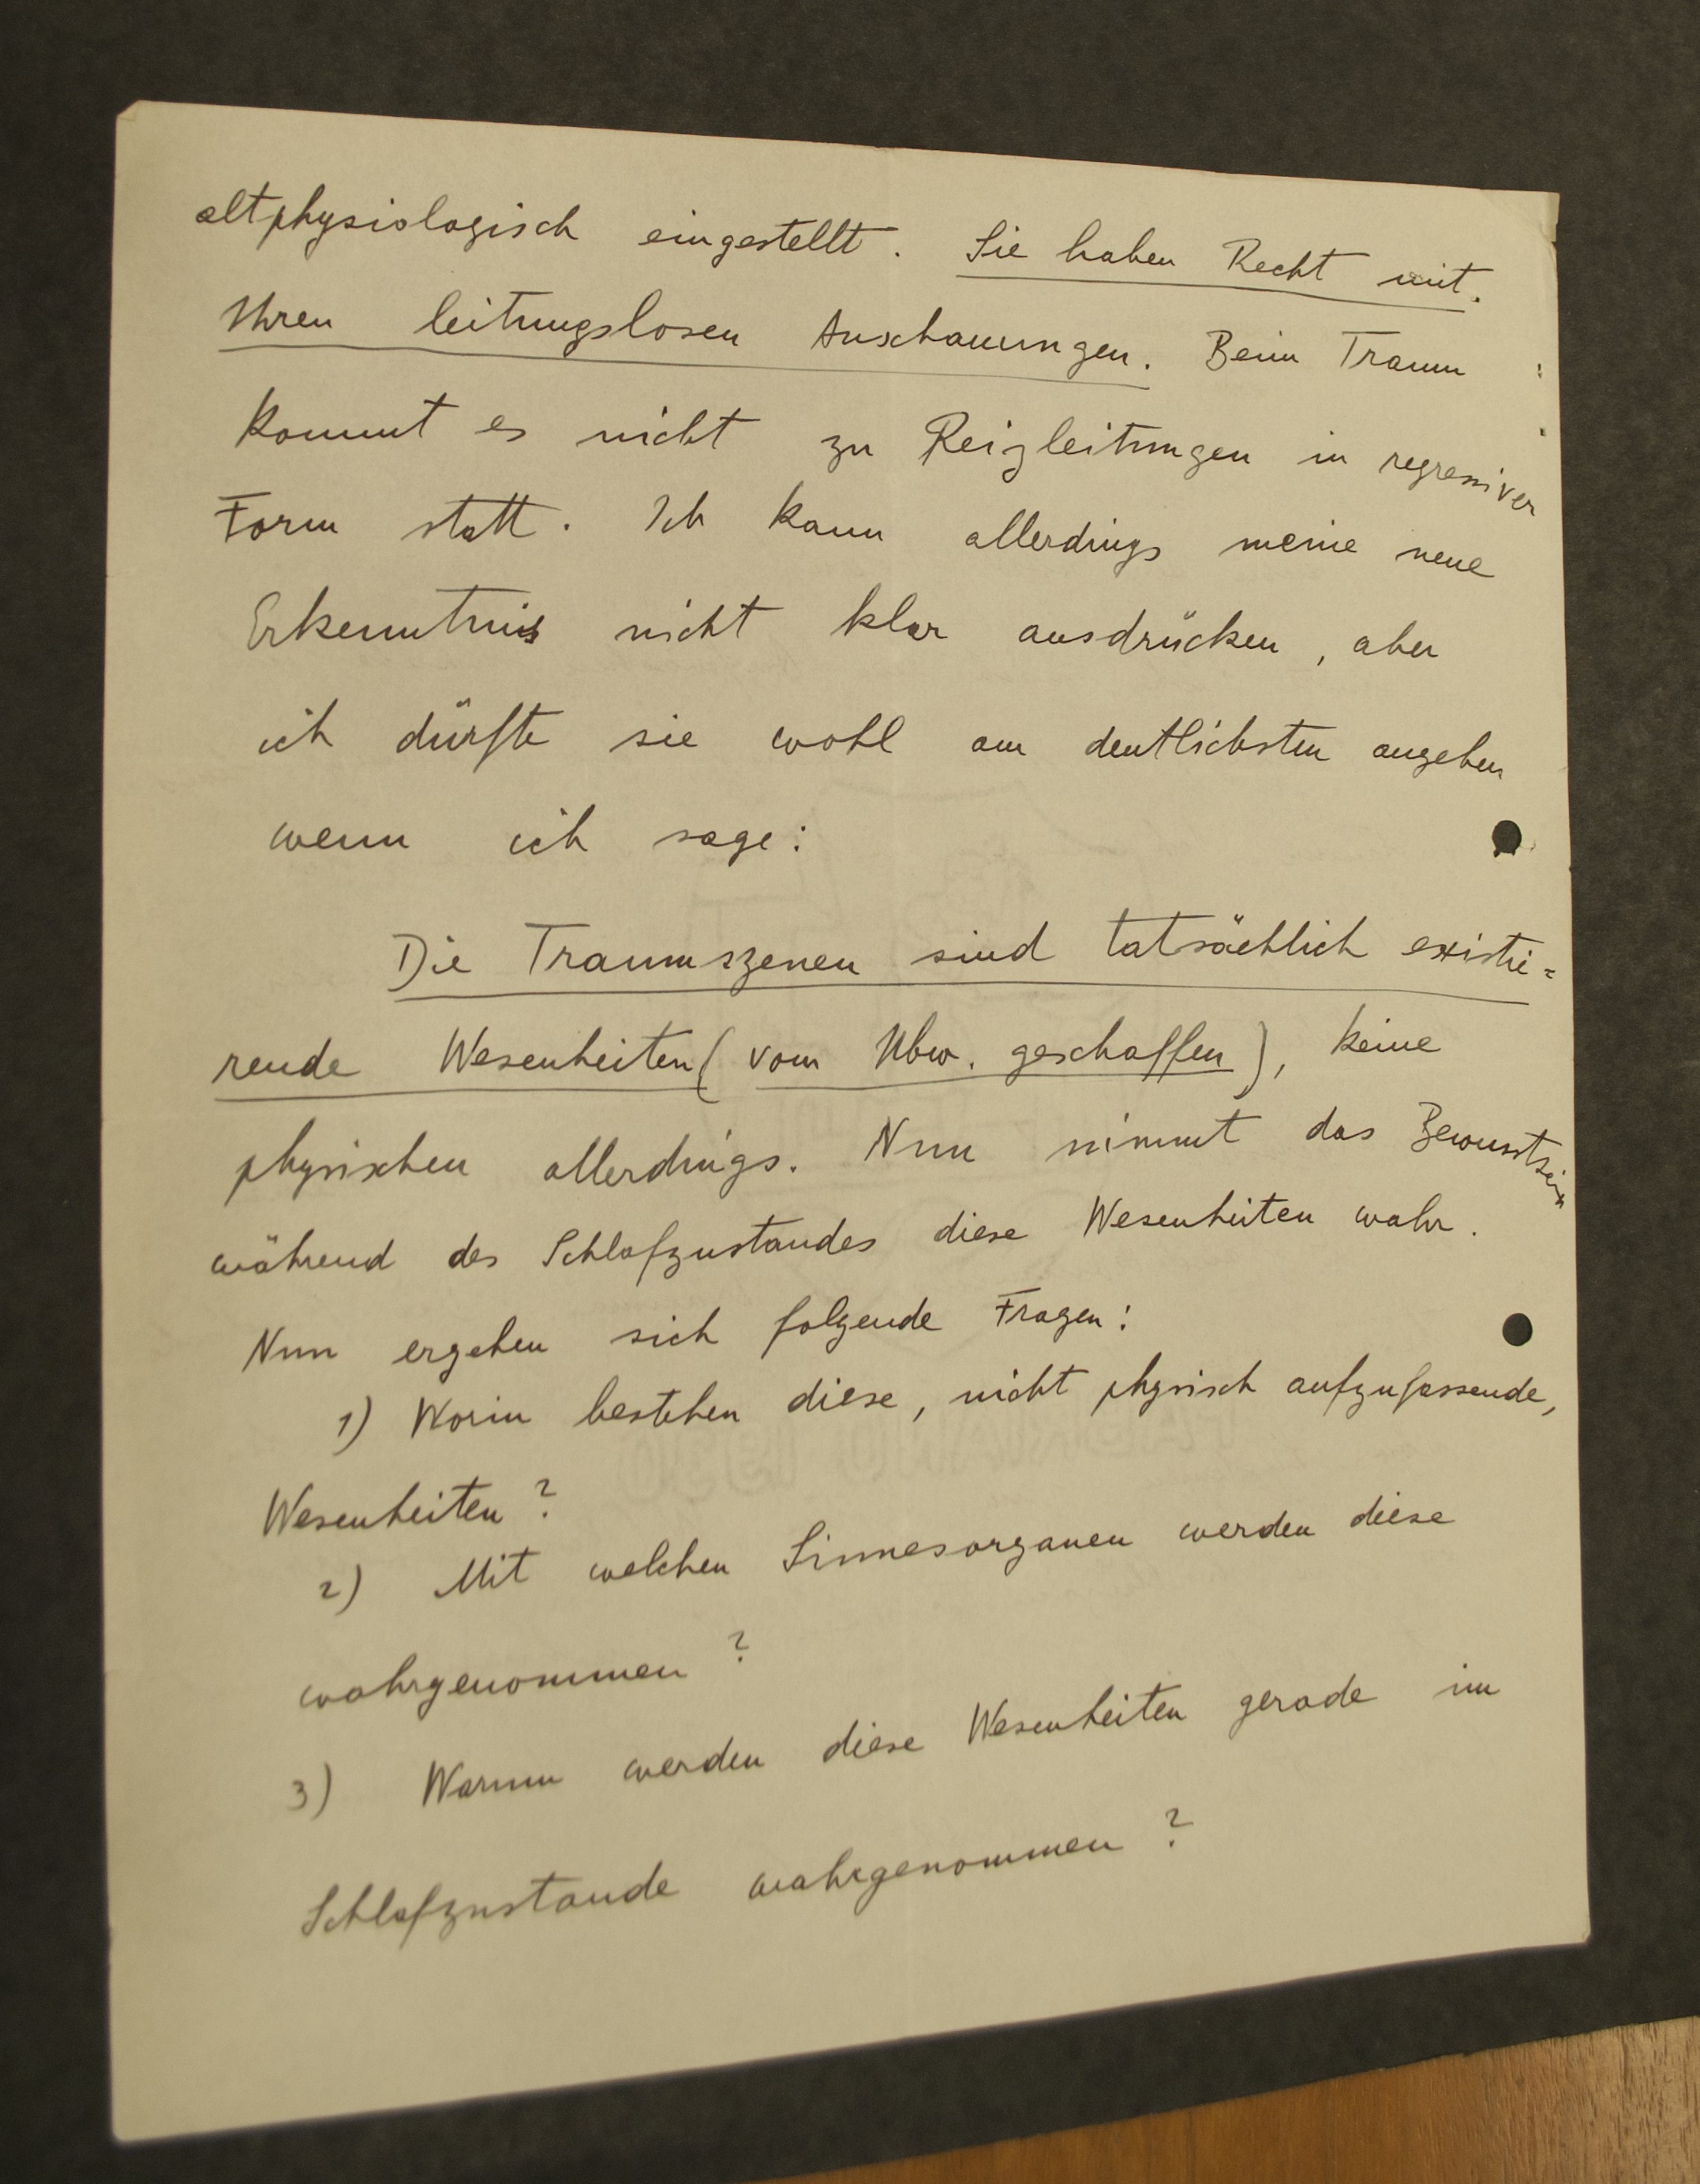 altphysiologisch eingestellt. Sie haben Recht mit.
Ihren leitungslosen Anschauungen. Beim Traum
kommt es nicht zu Reizleitungen in regressiver
Form statt. Ich kann allerdings meine neue
Erkenntnis nicht klar ausdrücken, aber
ich dürfte sie wohl am deutlichsten angeben
wenn ich sage:
Die Traumszenen sind tatsächlich existie=
rende Wesenheiten (vom Ubw. geschaffen), keine
physischen allerdings. Nun nimmt das Bewusstsein
während des Schlafzustandes diese Wesenheiten wahr.
Nun ergeben sich folgende Fragen:
1) Worin bestehen diese, nicht physisch aufzufassende,
Wesenheiten?
2) Mit welchen Sinnesorganen werden diese
wahrgenommen?
3) Warum werden diese Wesenheiten gerade im
Schlafzustande wahrgenommen?